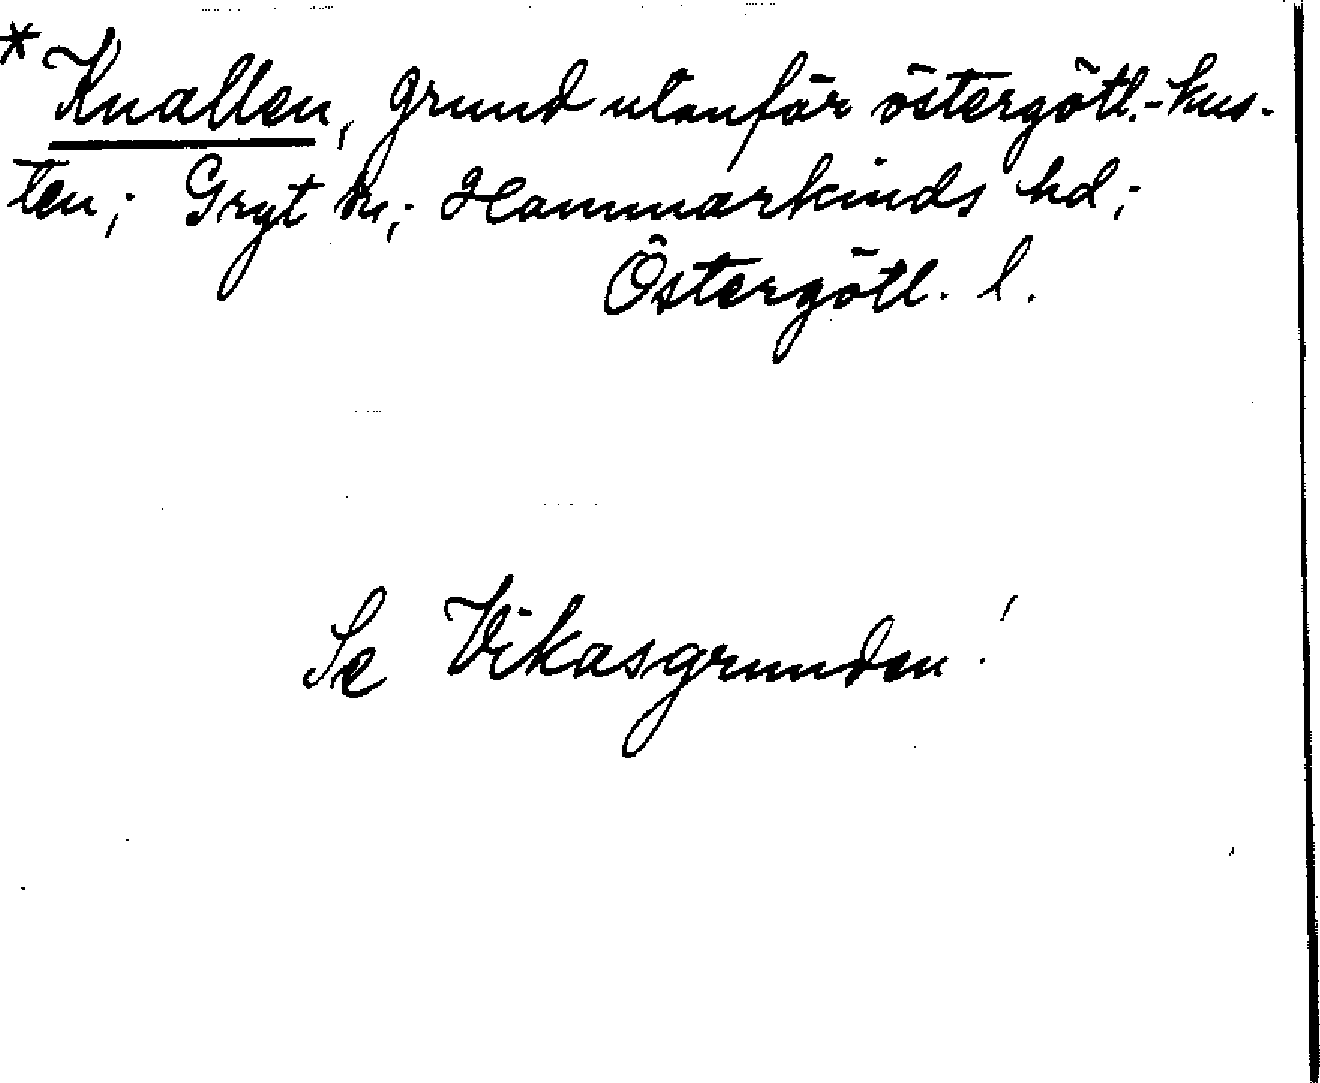 *Knallen, grund utanför östergötl.-kus-
ten; Gryt sn; Hammarkinds hd;
Östergötl. l.
Se Vikasgrunden!